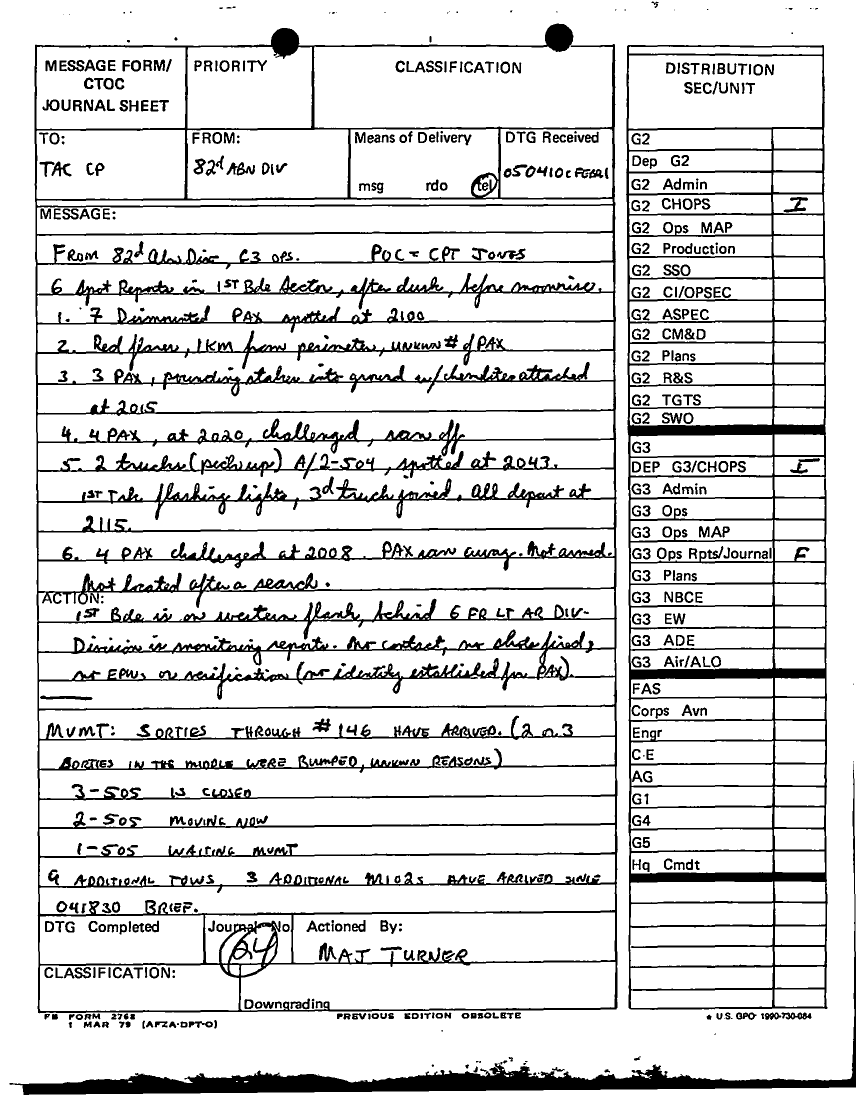 MESSAGE FORM/
CTOC
JOURNAL SHEET
PRIORITY
CLASSIFICATION
TO:
TAC CP
FROM:
82d ABN DIV
Means of Delivery
msg rdo tel
DTG Received
050410C FEB91
MESSAGE:
From 82d Abn Div, G3 OPS. POC = CPT JONES
6 Spot Reports in 1ST Bde Sector, after dusk, before moonrise.
1. 7 Dismounted PAX spotted at 2100
2. Red flares, 1KM from perimeter, UNKWN # of PAX
3. 3 PAX, pounding stakes into ground w/chemlites attached
at 2015
4. 4 PAX, at 2020, challenged, ran off
5. 2 trucks (pickup) A/2-504, spotted at 2043.
1ST Trk flashing lights, 3d truck joined. All depart at
2115.
6. 4 PAX challenged at 2008. PAX ran away. Not armed.
Not located after a search.
ACTION:
1ST Bde is on western flank, behind 6 FR LT AR DIV-
Division is monitoring reports. No contact, no shots fired,
no EPWs or verification (no identity established for PAX).
MVMT: SORTIES THROUGH #146 HAVE ARRIVED. (2 or 3
SORTIES IN THE MIDDLE WERE BUMPED, UNKWN REASONS)
3-505 IS CLOSED
2-505 MOVING NOW
1-505 WAITING MVMT
9 ADDITIONAL TOWS, 3 ADDITIONAL M102s HAVE ARRIVED SINCE
041830 BRIEF.
DTG Completed
Journal No
24
Actioned By:
MAJ TURNER
CLASSIFICATION:
Downgrading
FB FORM 2768
1 MAR 79 (AFZA-DPT-O)
PREVIOUS EDITION OBSOLETE
DISTRIBUTION
SEC/UNIT
G2
Dep G2
G2 Admin
G2 CHOPS I
G2 Ops MAP
G2 Production
G2 SSO
G2 CI/OPSEC
G2 ASPEC
G2 CM&D
G2 Plans
G2 R&S
G2 TGTS
G2 SWO
G3
DEP G3/CHOPS I
G3 Admin
G3 Ops
G3 Ops MAP
G3 Ops Rpts/Journal F
G3 Plans
G3 NBCE
G3 EW
G3 ADE
G3 Air/ALO
FAS
Corps Avn
Engr
C-E
AG
G1
G4
G5
Hq Cmdt
★ U.S. GPO: 1990-730-084